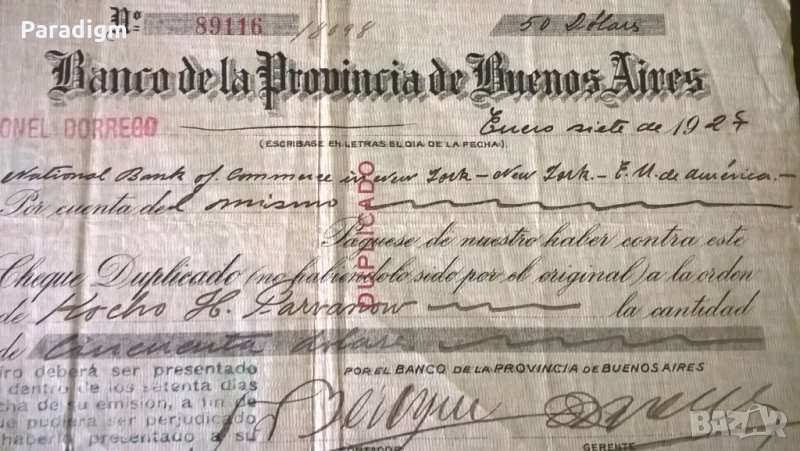 Paradigm
Nº 89116 / 8098 50 Dólars
Banco de la Provincia de Buenos Aires
ONEL DORREGO Enero siete de 1927
(ESCRIBASE EN LETRAS EL DIA DE LA FECHA)
National Bank of Commerce in New York – New York. – E. U. de América. –
Por cuenta del mismo
DUPLICADO
Páguese de nuestro haber contra este
Cheque Duplicado (no habiéndolo sido por el original) a la orden
de Kocho H. Parvanow la cantidad
de cincuenta dolars
iro deberá ser presentado
dentro de los setenta días
cha de su emisión, a fin de
ue pudiera ser perjudicado
haberlo presentado a su
POR EL BANCO DE LA PROVINCIA DE BUENOS AIRES
CONTADOR GERENTE
BAZAR